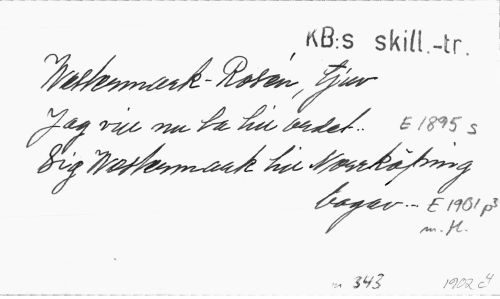 KB:s skill.-tr.
Westermark-Rosén, tjuv
Jag vill nu ta till ordet.. E 1895 s
Sig Westermark till Norrköping
begav... E 1901 p³
m. fl.
m 343 1902 c4